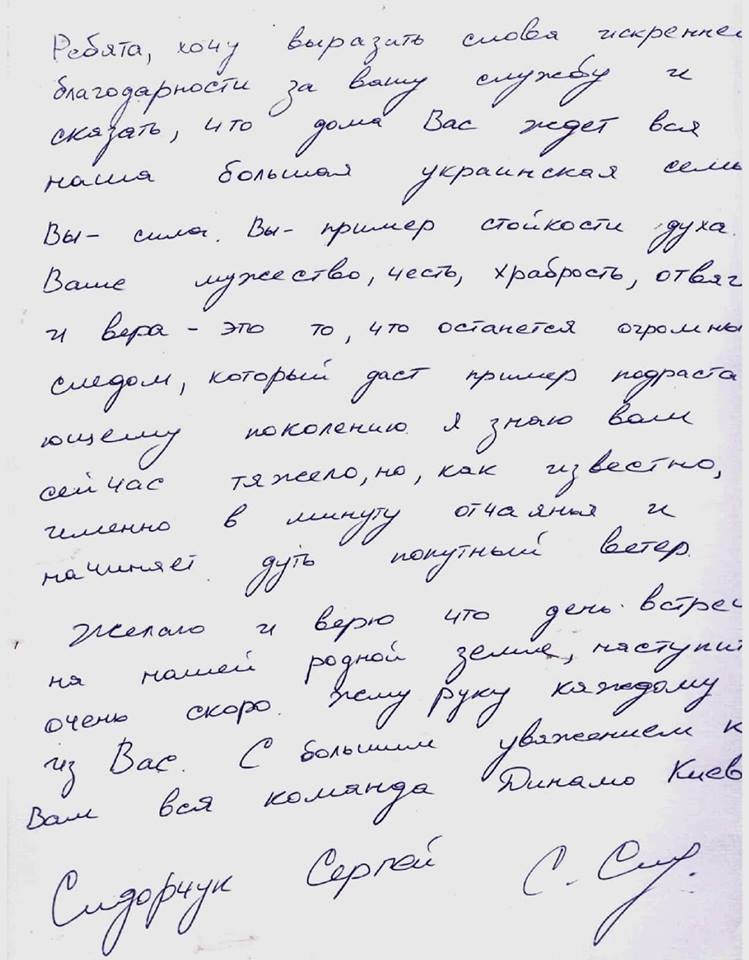 Ребята, хочу выразить слова искренней
благодарности за вашу службу и
сказать, что дома Вас ждет вся
наша большая украинская семь
Вы - сила. Вы - пример стойкости духа.
Ваше мужество, честь, храбрость, отваг
и вера - это то, что останется огромны
следом, который даст пример подраста
ющему поколению. Я знаю вам
сейчас тяжело, но, как известно,
именно в минуту отчаянья и
начинает дуть попутный ветер.
Желаю и верю что день встреч
на нашей родной земле, наступит
очень скоро. Жму руку каждому
из Вас. С большим уважением к
Вам вся команда Динамо Киев
Сидорчук Сергей